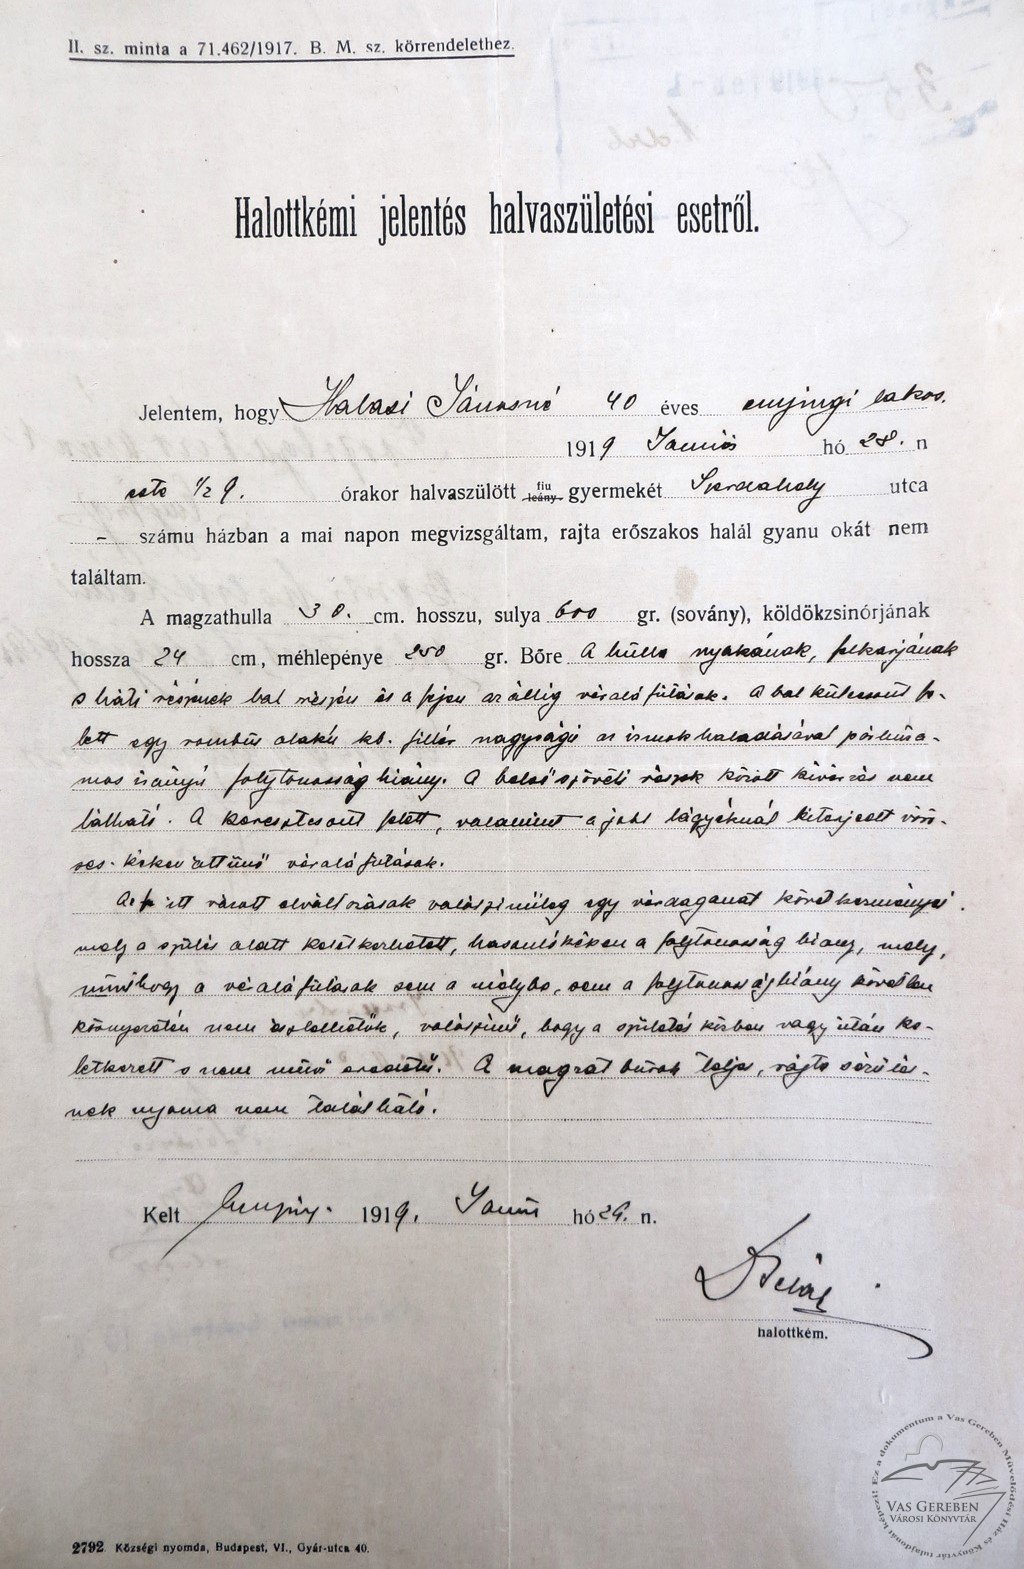 II. sz. minta a 71.462/1917. B. M. sz. körrendelethez.
Halottkémi jelentés halvaszületési esetről.
Jelentem, hogy Halasi Jánosné 40 éves enyingi lakos.
1919 Junius hó 28. n
este 1/2 9. órakor halvaszülött fiu leány gyermekét Szerdahely utca
- számu házban a mai napon megvizsgáltam, rajta erőszakos halál gyanu okát nem
találtam.
A magzathulla 30. cm. hosszu, sulya 600 gr. (sovány), köldökzsinórjának
hossza 24 cm, méhlepénye 250 gr. Bőre A hulla nyakának, felkarjának
s háti részének bal részén és a fejen az állig véraláfutások. A bal kulcscsont fe-
lett egy rombus alaku kb. fillér nagyságú az izmok haladásával párhuza-
mos irányú folytonosság hiány. A belső szöveti részek között kivérzés nem
látható. A keresztcsont felett, valamint a jobb lágyéknál kiterjedt vörö-
ses-kéken áttünő véraláfutások.
itt vázolt elváltozások valószinüleg egy vérdaganat következményei
mely a szülés alatt keletkezhetett, hasonlóképen a folytonosság hiány, mely,
minthogy a véraláfutások sem a mélybe, sem a folytonossághiány közvetlen
környezetén nem észlelhetők, valószinü, hogy a születés közben vagy után ke-
letkezett s nem müvi eredetü. A magzat burok teljes, rajta sérülés-
nek nyoma nem található.
Kelt Enying. 1919. Juni hó 29. n.
halottkém.
2792 Községi nyomda, Budapest, VI., Gyár-utca 40.
Ez a dokumentum a Vas Gereben Művelődési Ház és Könyvtár tulajdonát képezi!
VAS GEREBEN
VÁROSI KÖNYVTÁR